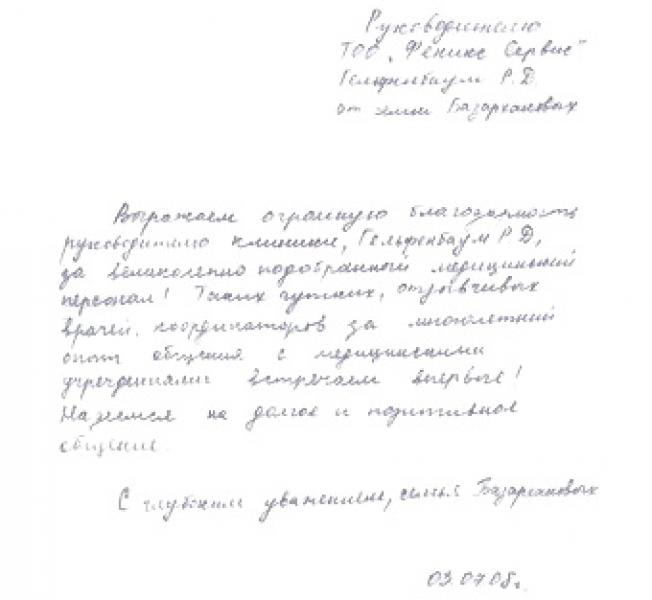 Руководителю
ТОО "Феникс Сервис"
Гельфенбаум Р.Д.
от семьи Базархановых
Выражаем огромную благодарность
руководителю клиники, Гельфенбаум Р.Д,
за великолепно подобранный медицинский
персонал! Таких чутких, отзывчивых
врачей, координаторов за многолетний
опыт общения с медицинскими
учреждениями встречаем впервые!
Надеемся на долгое и позитивное
общение.
С глубоким уважением, семья Базархановых
03.07.05г.